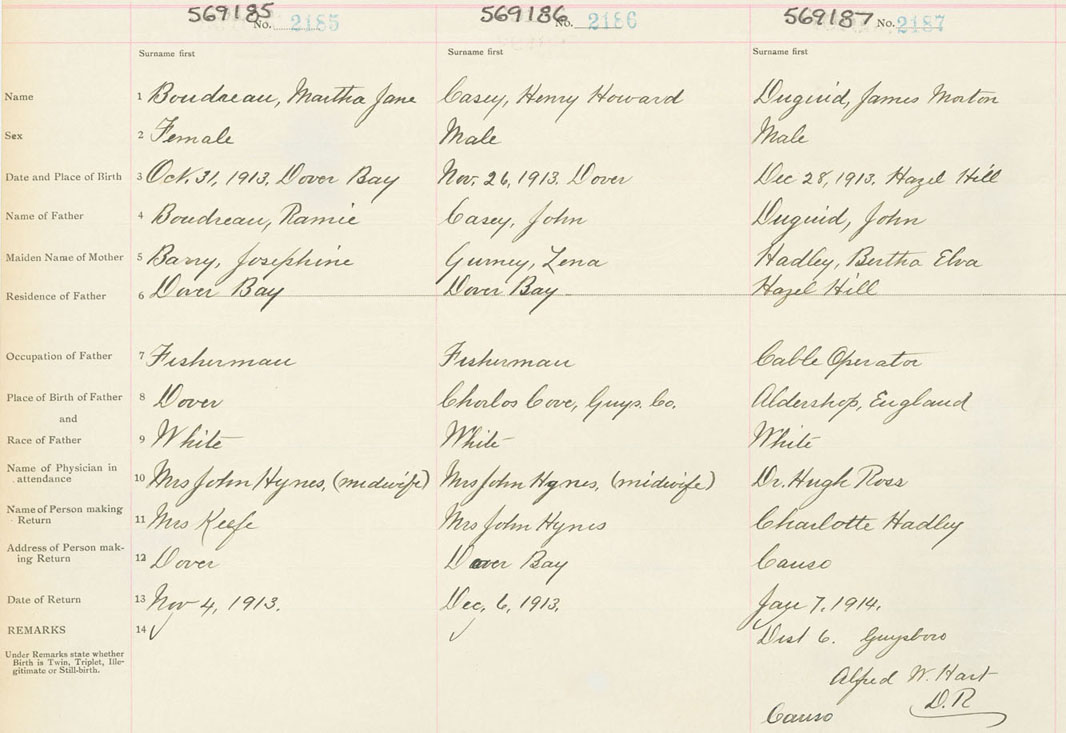 569185 No. 2185 569186 No. 2186 569187 No. 2187
Surname first Surname first Surname first
Name 1 Boudreau, Martha Jane Casey, Henry Howard Duguid, James Morton
Sex 2 Female Male Male
Date and Place of Birth 3 Oct. 31, 1913, Dover Bay Nov. 26, 1913. Dover Dec 28, 1913. Hazel Hill
Name of Father 4 Boudreau, Ramie Casey, John Duguid, John
Maiden Name of Mother 5 Barry, Josephine Gurney, Lena Hadley, Bertha Elva
Residence of Father 6 Dover Bay Dover Bay Hazel Hill
Occupation of Father 7 Fisherman Fisherman Cable Operator
Place of Birth of Father 8 Dover Charlos Cove, Guys. Co. Aldershop, England
and
Race of Father 9 White White White
Name of Physician in
attendance 10 Mrs John Hynes, (midwife) Mrs John Hynes, (midwife) Dr. Hugh Ross
Name of Person making
Return 11 Mrs Keefe Mrs John Hynes Charlotte Hadley
Address of Person mak-
ing Return 12 Dover Dover Bay Canso
Date of Return 13 Nov 4, 1913. Dec, 6, 1913. Jan 7, 1914.
REMARKS 14 √ √ Dist 6. Guysboro
Under Remarks state whether
Birth is Twin, Triplet, Ille-
gitimate or Still-birth.
Alfred W. Hart
D.R
Canso